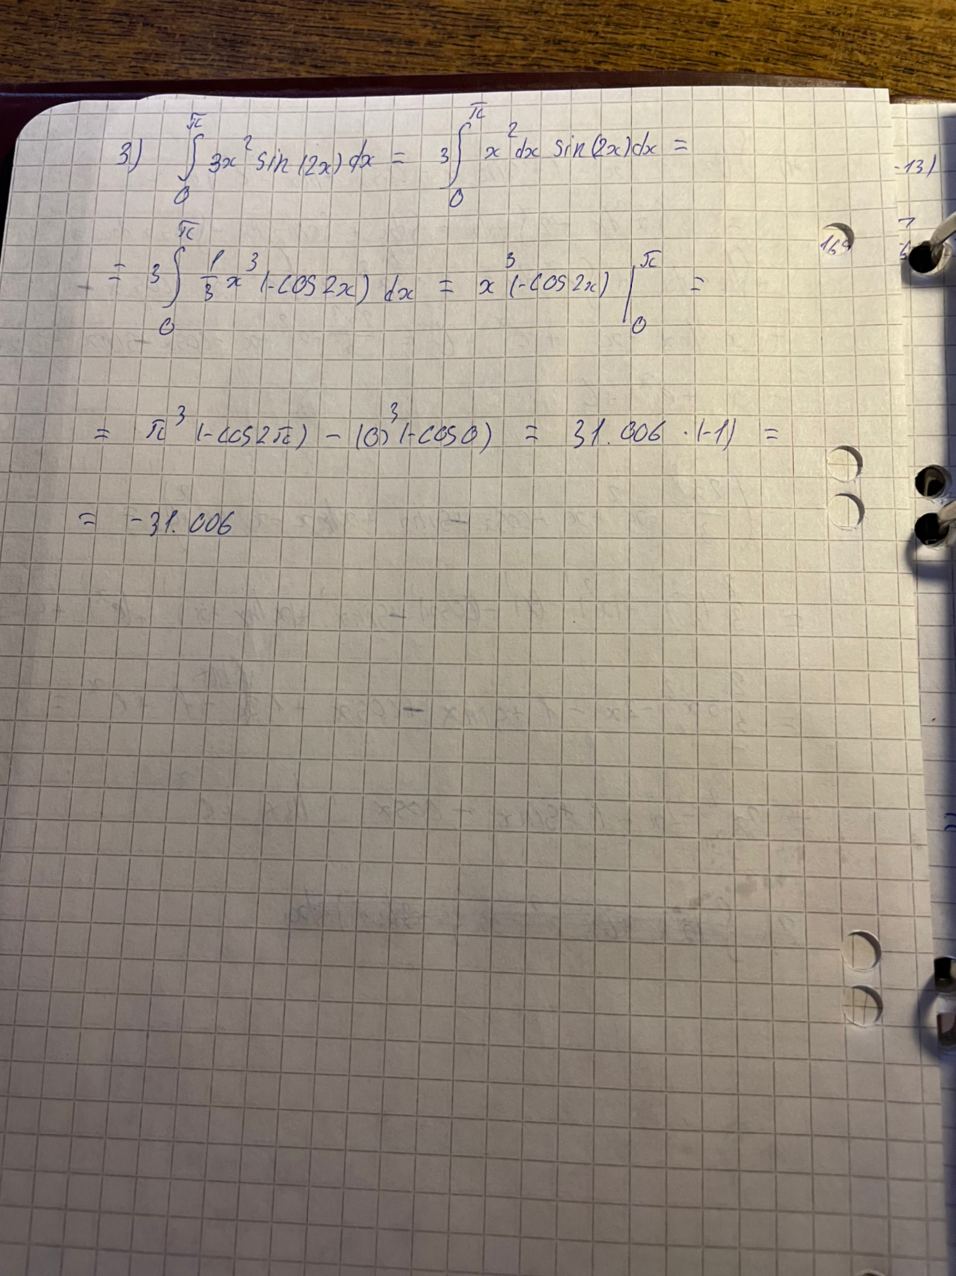 3) ∫₀^π 3x² sin(2x) dx = 3∫₀^π x² dx sin(2x) dx =
= 3∫₀^π 1/3 x³ (-cos2x) dx = x³ (-cos2x) |₀^π =
= π³ (-cos2π) - (0)³ (-cos0) = 31.006 · (-1) =
= -31.006
-13)